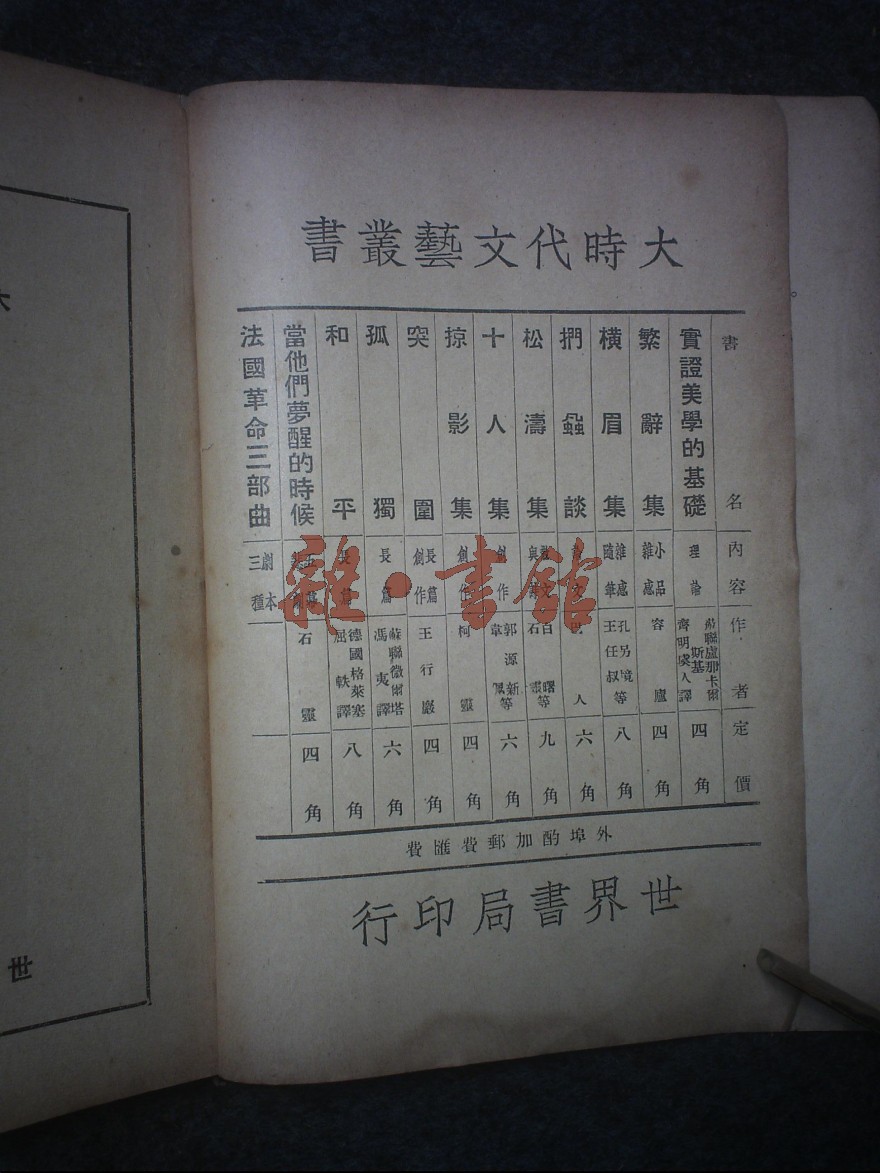 大時代文藝叢書
書名 內容 作者 定價
實證美學的基礎 理論 蘇聯盧那卡爾斯基 齊明虞人譯 四角
繁辭集 小品雜感 容廬 四角
橫眉集 雜感隨筆 孔另境王任叔等 八角
捫蝨談 人 六角
松濤集 白曙石靈等 九角
十人集 創作 郭源新韋佩等 六角
掠影集 創作 柯靈 四角
突圍 長篇創作 王行巖 四角
孤獨 長篇 蘇聯微爾塔 馮夷譯 六角
和平 長篇 德國格萊塞 屈軼譯 八角
當他們夢醒的時候 五幕 石靈 四角
法國革命三部曲 劇本三種
外埠酌加郵費匯費
世界書局印行
雜·書館
世